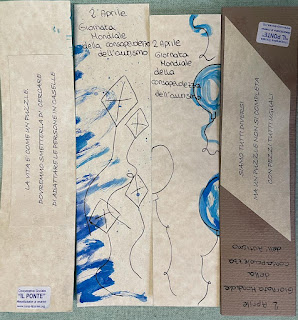 LA VITA È COME UN PUZZLE
DOVREMMO SMETTERLA DI CERCARE
DI ADATTARE LE PERSONE IN CASELLE
"IL PONTE"
2 Aprile
Giornata
Mondiale
della consapevolezza
dell'autismo
2 Aprile
Giornata
Mondiale
della
consapevolezza
dell'autismo
SIAMO TUTTI DIVERSI
MA UN PUZZLE NON SI COMPLETA
CON PEZZI TUTTI UGUALI
"IL PONTE"
2 Aprile
Giornata Mondiale
della
consapevolezza
dell'Autismo